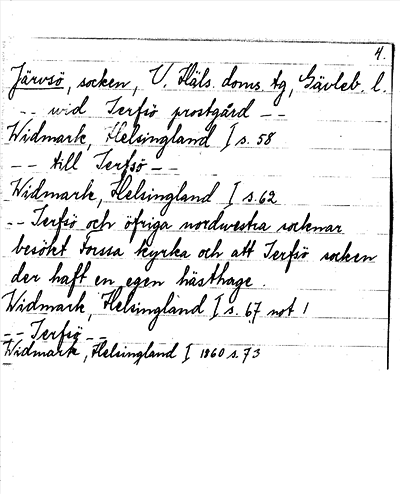 4.
Järvsö, socken, V. Häls. doms. tg, Gävleb. l.
-- wid Jerfsö prostgård --
Widmark, Helsingland I s. 58
-- till Jerfsö --
Widmark, Helsingland I s. 62
-- Jerfsö och öfriga nordvestra socknar
besökt Forssa kyrka och att Jerfsö socken
der haft en egen hästhage.
Widmark, Helsingland I s. 67 not 1
-- Jerfsö --
Widmark, Helsingland I 1860 s. 73